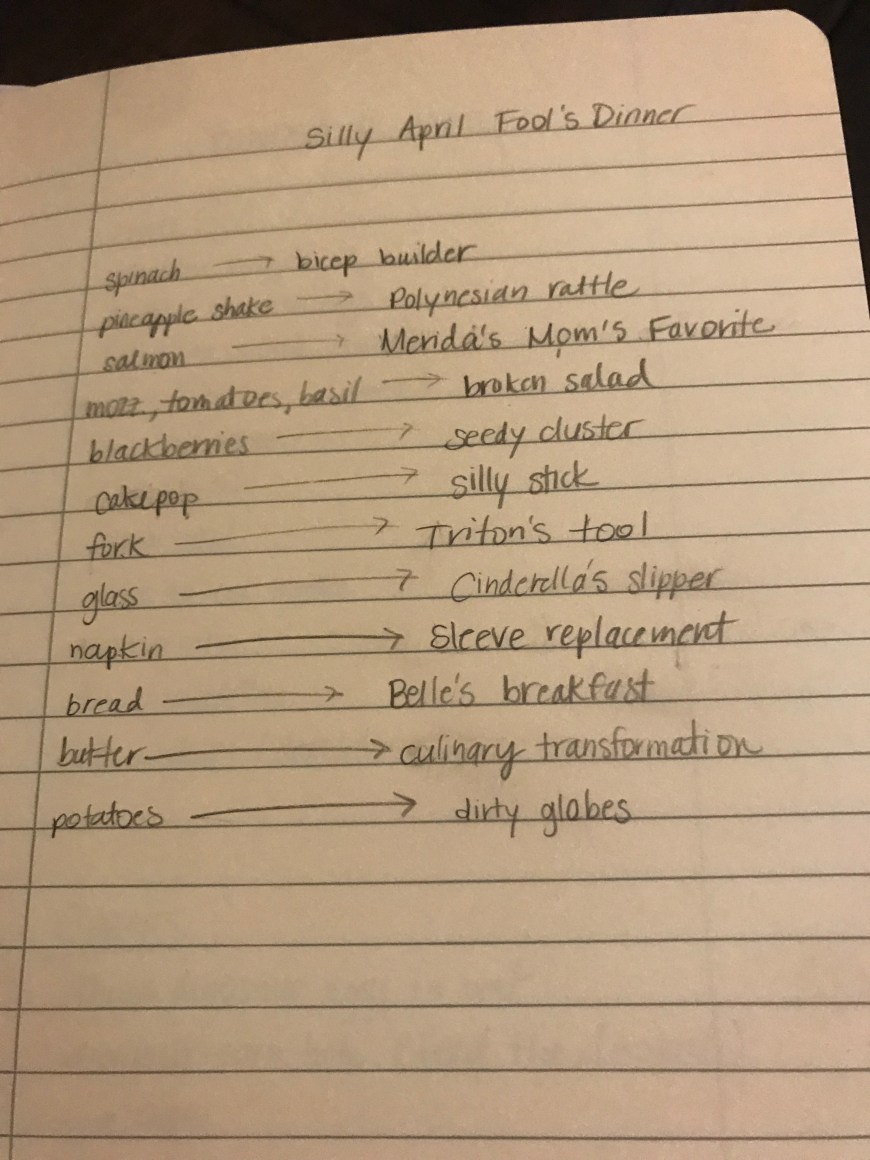 Silly April Fool's Dinner
spinach → bicep builder
pineapple shake → Polynesian rattle
salmon → Merida's Mom's Favorite
mozz, tomatoes, basil → broken salad
blackberries → seedy cluster
cake pop → silly stick
fork → Triton's tool
glass → Cinderella's slipper
napkin → sleeve replacement
bread → Belle's breakfast
butter → culinary transformation
potatoes → dirty globes